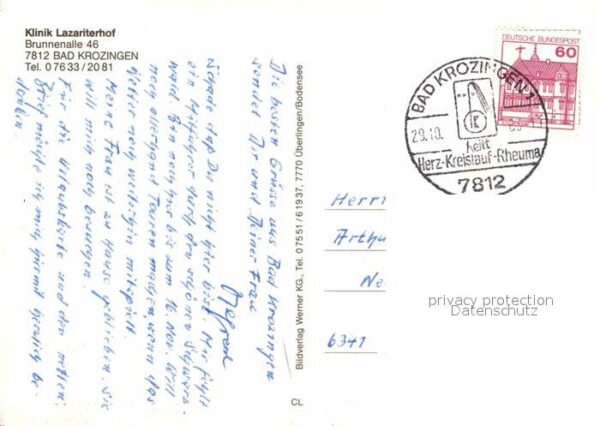 Klinik Lazariterhof
Brunnenalle 46
7812 BAD KROZINGEN
Tel. 0 76 33 / 20 81
Die besten Grüsse aus Bad Krozingen
sendet Dir und Deiner Frau
Schade daß Du nicht hier bist. Mir fehlt
ein durch den schönen Schwarz-
wald. Bin noch hier bis zum 16. Nov. Will
noch Touren machen, wenn das
Wetter noch weiterhin mitspielt.
Meine Frau ist zu Hause geblieben. Sie
will mich noch besuchen.
Für die Urlaubskarte und den netten
Brief möchte ich mich hiermit herzlich be-
danken.
Bildverlag Werner KG., Tel. 0 75 51 / 6 19 37, 7770 Überlingen/Bodensee
CL
DEUTSCHE BUNDESPOST
60
BAD KROZINGEN 1
29.10.
heilt
Herz-Kreislauf-Rheuma
7812
Herrn
Arthu
Ne
6341
privacy protection
Datenschutz